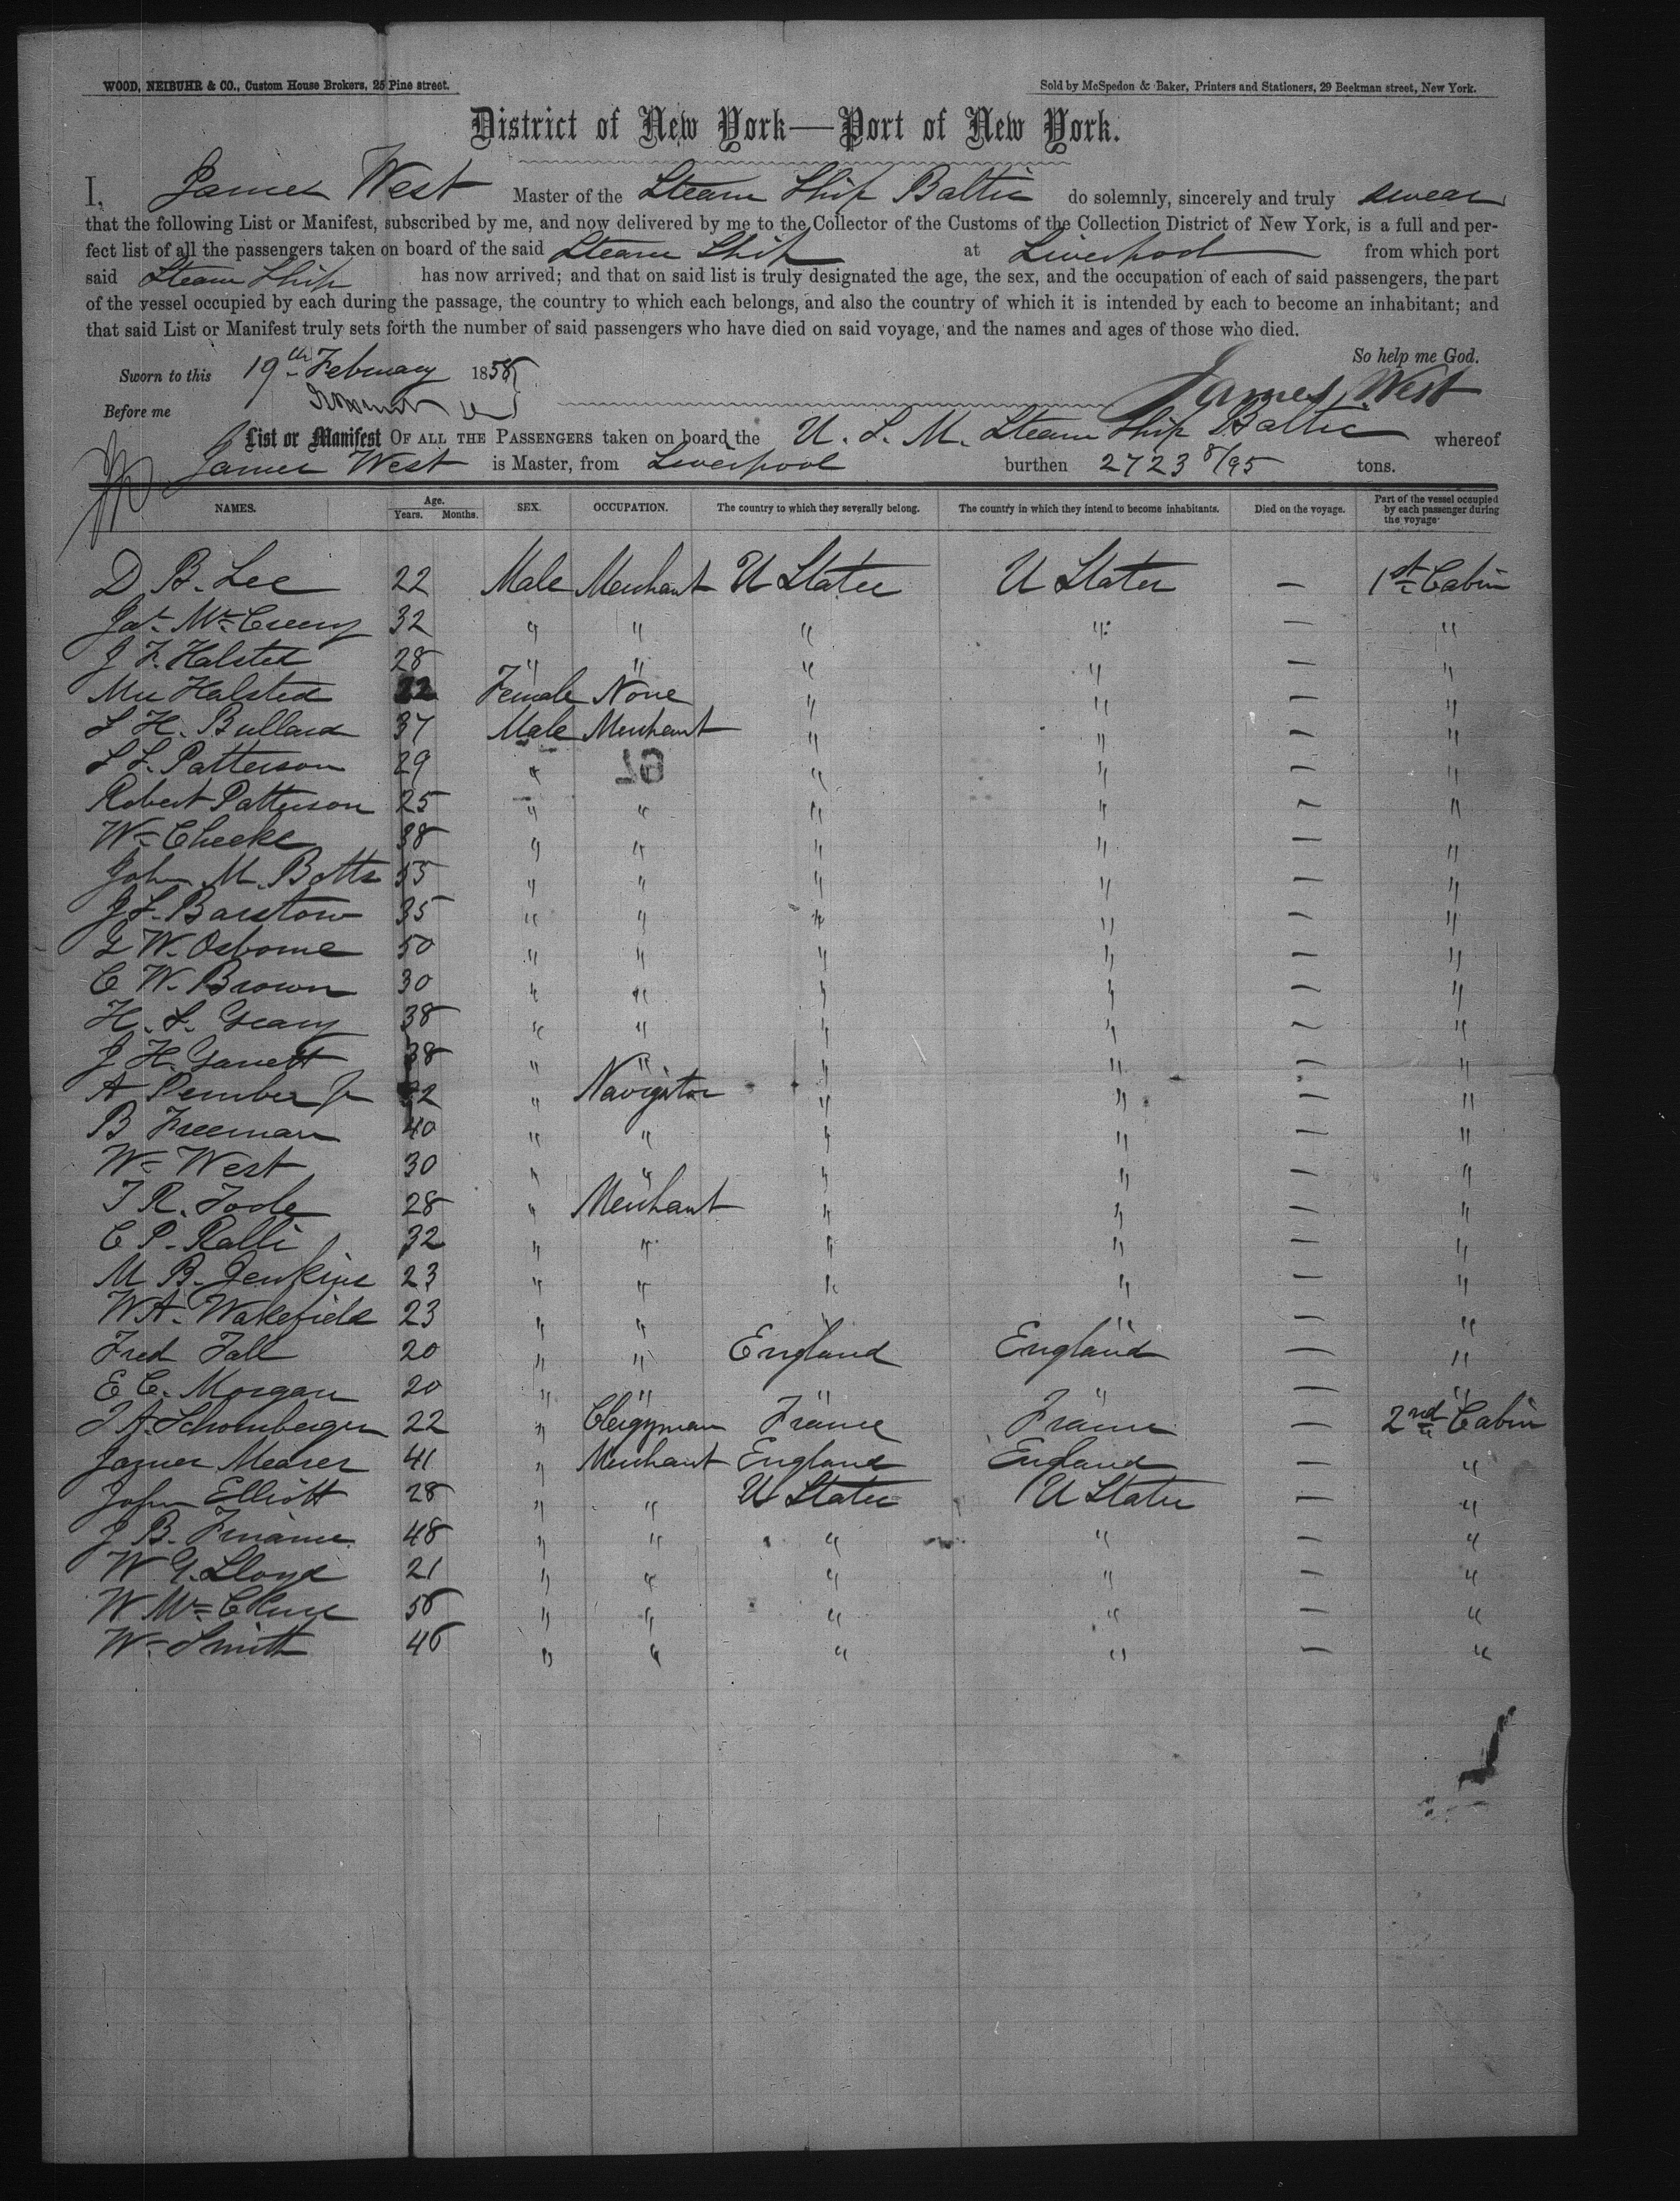 WOOD, NEIBUHR & CO., Custom House Brokers, 25 Pine street. Sold by McSpedon & Baker, Printers and Stationers, 29 Beekman street, New York.
District of New York—Port of New York.
I, James West Master of the Steam Ship Baltic do solemnly, sincerely and truly swear
that the following List or Manifest, subscribed by me, and now delivered by me to the Collector of the Customs of the Collection District of New York, is a full and per-
fect list of all the passengers taken on board of the said Steam Ship at Liverpool from which port
said Steam Ship has now arrived; and that on said list is truly designated the age, the sex, and the occupation of each of said passengers, the part
of the vessel occupied by each during the passage, the country to which each belongs, and also the country of which it is intended by each to become an inhabitant; and
that said List or Manifest truly sets forth the number of said passengers who have died on said voyage, and the names and ages of those who died.
So help me God.
Sworn to this 19th February 1858
Before me James West
List or Manifest OF ALL THE PASSENGERS taken on board the U. S. M. Steam Ship Baltic whereof
James West is Master, from Liverpool burthen 2723 8/95 tons.
NAMES. Age. Years. Months. SEX. OCCUPATION. The country to which they severally belong. The country in which they intend to become inhabitants. Died on the voyage. Part of the vessel occupied by each passenger during the voyage
D. B. Lee 22 Male Merchant U States U States — 1st Cabin
Jas. McCreery 32 " " " " — "
J F. Halsted 28 " " " " — "
Mrs Halsted Female None " " — "
S H. Bullard 37 Male Merchant " " — "
S S. Patterson 29 " " " — "
62
Robert Patterson 25 " " " " — "
Wm Cheeks 38 " " " " — "
John M. Botts 55 " " " " — "
J S. Barstow 35 " " " " — "
W. Osborne 50 " " " " — "
C W. Brown 30 " " " " — "
H. S. Geary 38 " " " " — "
J H. Garrett 38 " " " " — "
A Pember Jr " Navigator " " — "
B Freeman 40 " " " " — "
Wm West 30 " " " " — "
T R. Foote 28 " Merchant " " — "
C P. Ralli 32 " " " " — "
M B. Jenkins 23 " " " " — "
W. A. Wakefield 23 " " " " — "
Fred Fall 20 " " England England — "
E C. Morgan 20 " " " " — "
J A. Schomberger 22 " Clergyman France France — 2nd Cabin
James Meares 41 " Merchant England England — "
John Elliott 28 " " U States U States — "
J. B. 48 " " " " — "
W G. Lloyd 21 " " " " — "
W McClure 56 " " " " — "
Wm Smith 46 " " " " — "